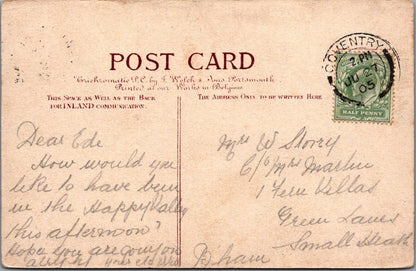 POST CARD
Trichromatic P.C. by J. Welch & Sons Portsmouth
Printed at our Works in Belgium
THIS SPACE AS WELL AS THE BACK
FOR INLAND COMMUNICATION.
THE ADDRESS ONLY TO BE WRITTEN HERE
COVENTRY
2 PM
JU 2
05
HALF PENNY
Dear Ede
How would you
like to have been
in the Happy Valley
this afternoon?
Hope you are going on
alright your old
Mrs W Storry
C/o Mrs Martin
1 Fern Villas
Green Lanes
Small Heath
B'ham